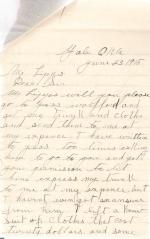 Yale Okla
June 23 1915
Mr. Lyons
Dear Sir
Mr. Lyons will you please
go to Bass and
get my trunk and clothes
and send them to me at
my expense. I have written
to Bass two times asking
him to go to you and get
your permission to let
him express my trunk
to me at my expence but I
havent even got an answer
from him. I left a brown
suit of clothes that cost
twenty dollars and some